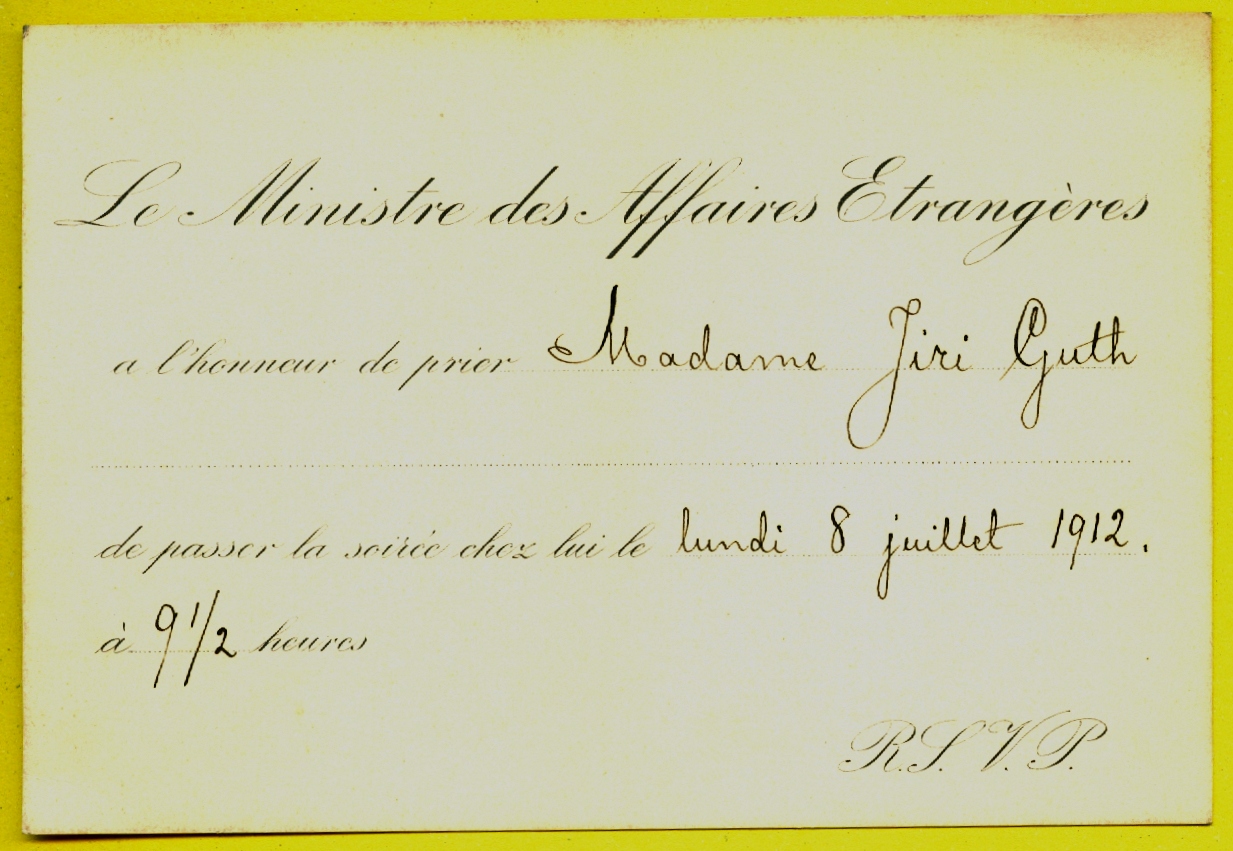 Le Ministre des Affaires Etrangères
a l'honneur de prier Madame Jiri Guth
de passer la soirée chez lui le lundi 8 juillet 1912.
à 9 1/2 heures
R.S.V.P.